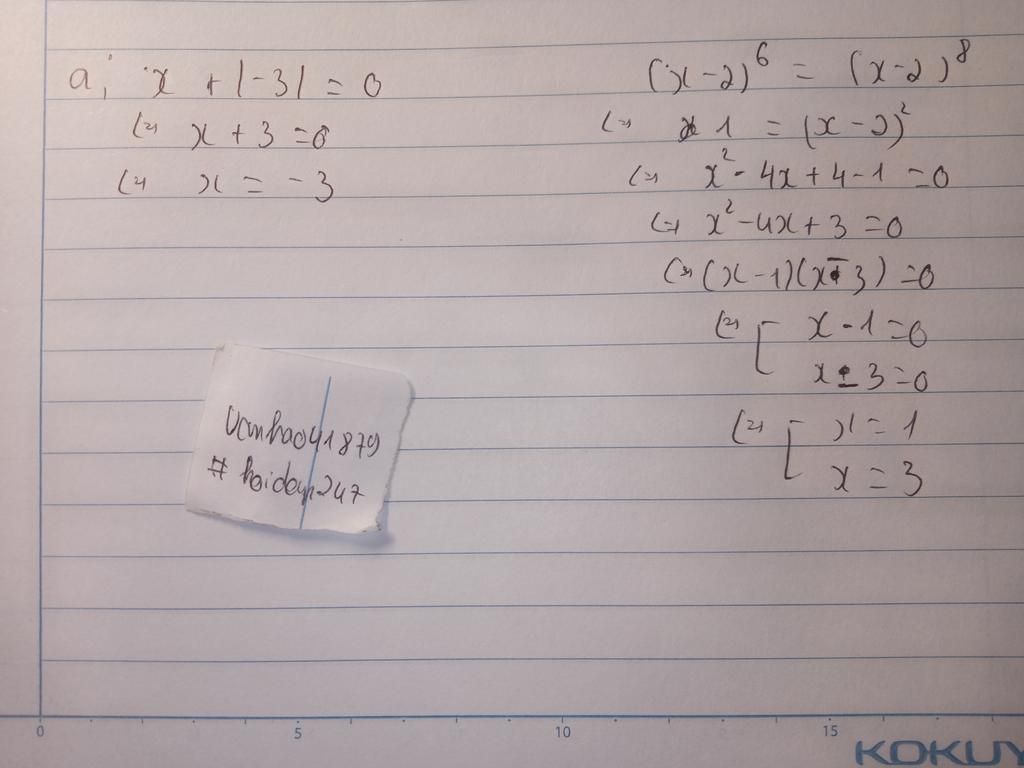 a; x + |-3| = 0
(=) x + 3 = 0
(=) x = -3
(x-2)^6 = (x-2)^8
(=) 1 = (x-2)^2
(=) x^2 - 4x + 4 - 1 = 0
(=) x^2 - 4x + 3 = 0
(=) (x-1)(x-3) = 0
(=) [ x - 1 = 0
x - 3 = 0
(=) [ x = 1
x = 3
Vanhao41879
# hoidap247
0 5 10 15
KOKUY